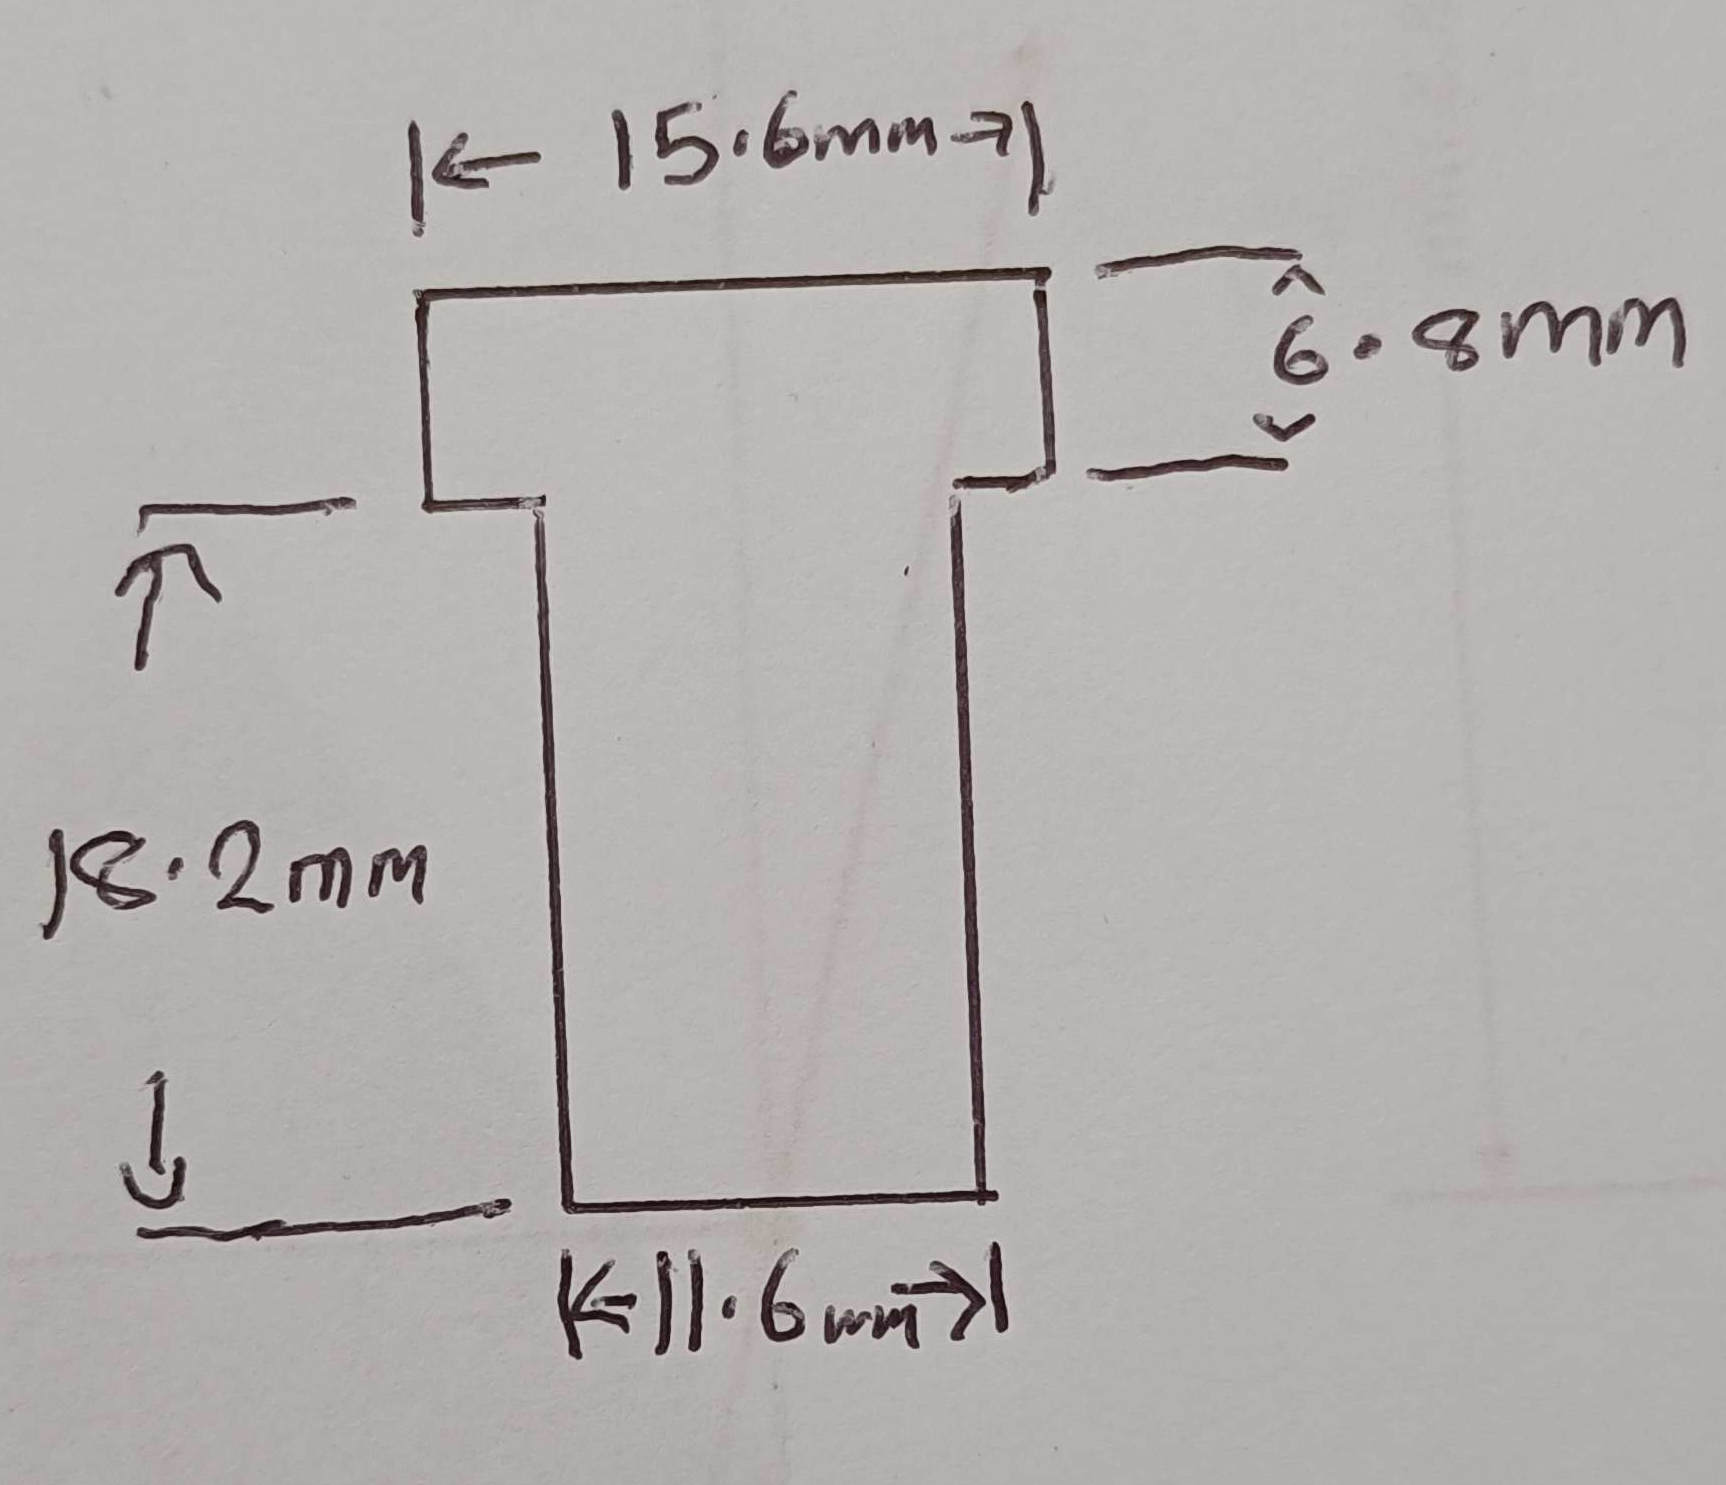 15.6mm
6.8mm
18.2mm
11.6mm